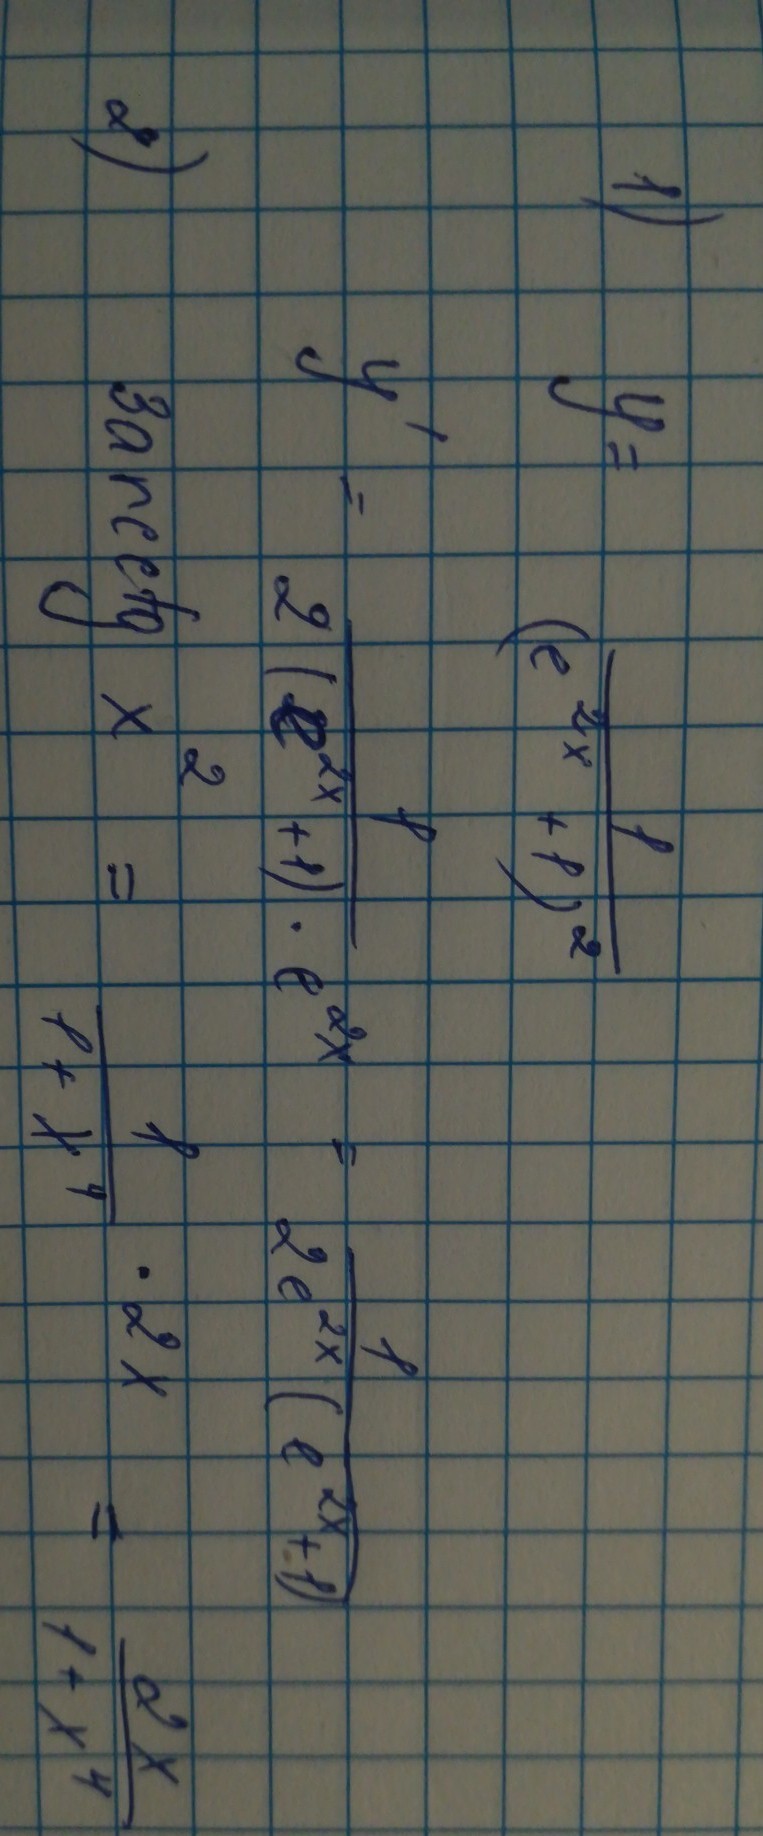 1) y = 1/(e^{2x} + 1)^2
y' = 1/(2(e^{2x} + 1) · e^{2x}) = 1/(2e^{2x}(e^{2x} + 1))
2) 3arcctg x^2 = 1/(1 + x^4) · 2x = 2x/(1 + x^4)